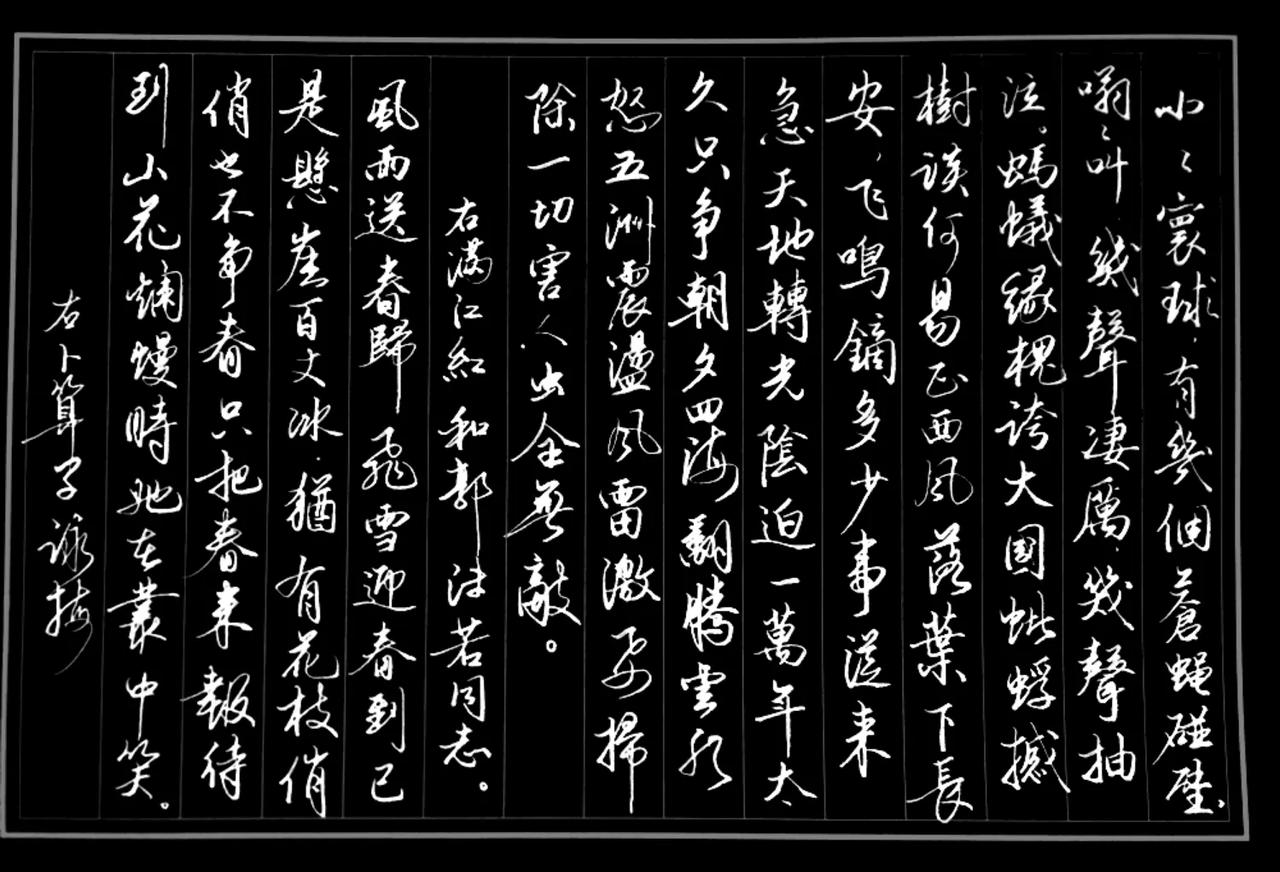 小々寰球，有幾個蒼蠅碰壁、
嗡々叫，幾聲凄厲，幾聲抽
泣。螞蟻緣槐誇大國蚍蜉撼
樹談何易正西风落葉下長
安，飞鳴鏑多少事從来
急天地轉光陰迫一萬年太
久只争朝夕四海翻騰雲水
怒五洲震盪风雷激要掃
除一切害人虫全無敵。
右滿江紅和郭沫若同志。
風雨送春歸飛雪迎春到已
是懸崖百丈冰，猶有花枝俏
俏也不争春只把春来報待
到山花爛熳時她在叢中笑。
右卜算子詠梅